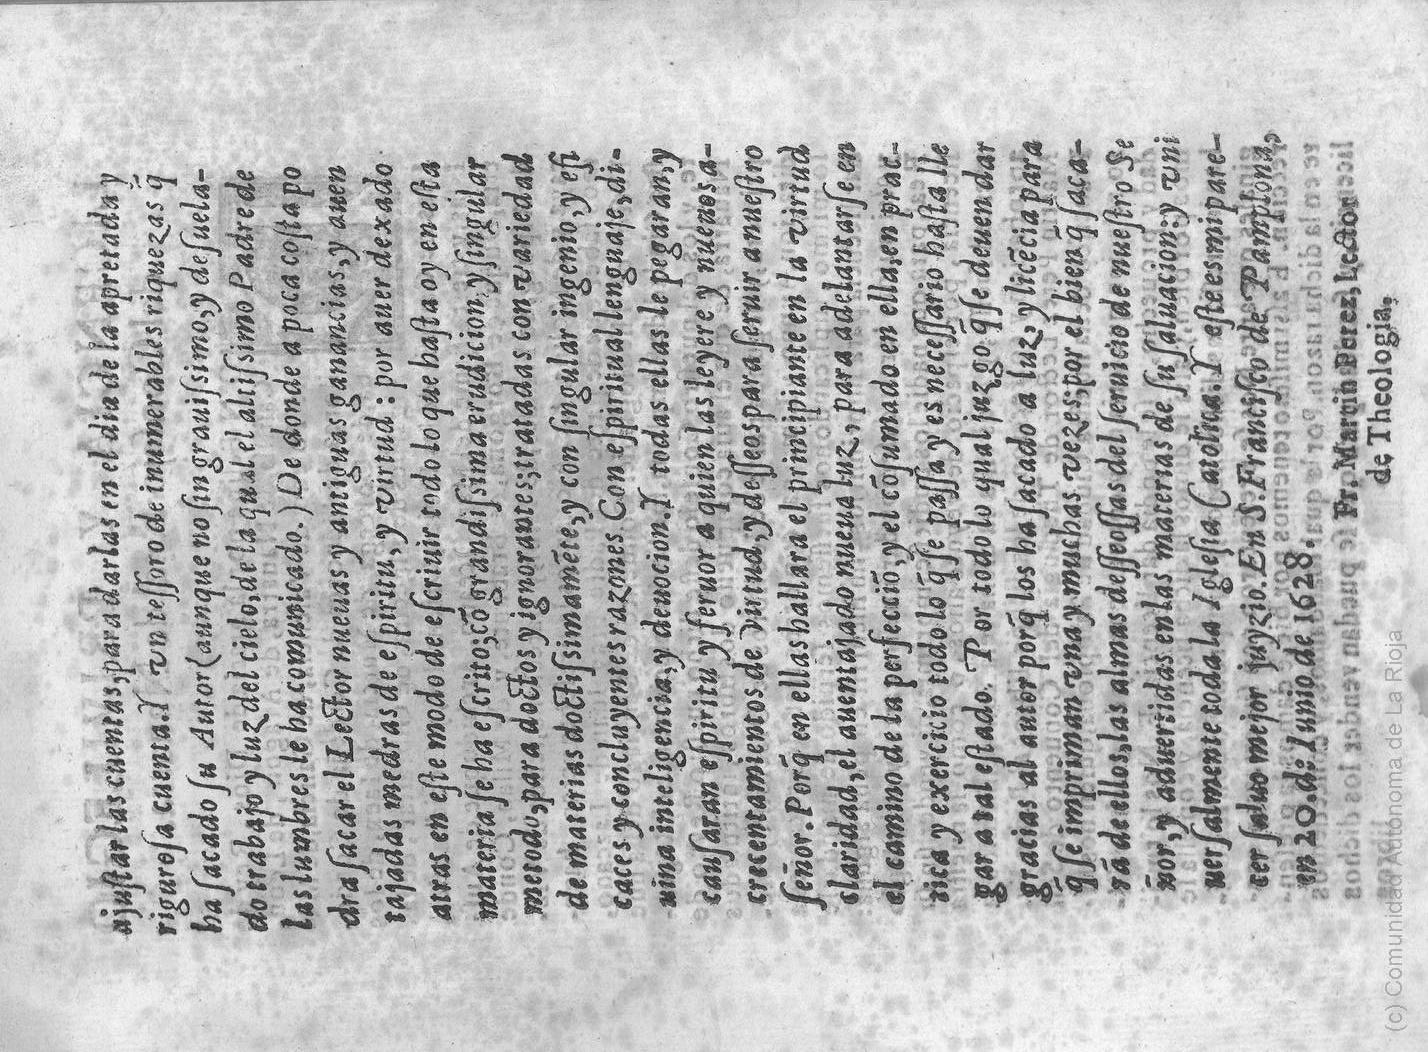 ajuſtar las cuentas, para darlas en el dia de la apretada y
riguroſa cuenta. Y vn teſſoro de inumerables riquezas q̃
ha ſacado ſu Autor (aunque no ſin grauiſsimo, y deſuela-
do trabajo y luz del cielo, de la qual el altiſsimo Padre de
las lumbres le ha comunicado.) De donde a poca coſta po
dra ſacar el Lector nueuas y antiguas ganancias, y auen
tajadas medras de eſpiritu, y virtud: por auer dexado
atras en eſte modo de eſcriuir todo lo que haſta oy en eſta
materia ſe ha eſcrito, cõ grandiſsima erudicion, y ſingular
metodo, para doctos y ignorantes; tratadas con variedad
de materias doctiſsimamẽte, y con ſingular ingenio, y efi
caces, y concluyentes razones. Con eſpiritual lenguaje, di-
uina inteligencia, y deuocion. Y todas ellas le pegaran, y
cauſaran eſpiritu y feruor a quien las leyere y nueuos a-
crecentamientos de virtud, y deſſeos para ſeruir a nueſtro
ſeñor. Porq̃ en ellas hallara el principiante en la virtud
claridad, el auentajado nueua luz, para adelantarſe en
el camino de la perfecciõ, y el cõſumado en ella, en prac-
tica y exercicio todo lo q̃ ſe paſſa y es neceſſario haſta lle
gar a tal eſtado. Por todo lo qual juzgo q̃ ſe deuen dar
gracias al autor porq̃ los ha ſacado a luz, y licẽcia para
q̃ ſe impriman vna y muchas vezes; por el bien q̃ ſaca-
rã de ellos, las almas deſſeoſſas del ſeruicio de nueſtro Se
ñor, y aduertidas en las materias de ſu ſaluacion: y vni
uerſalmente toda la Igleſia Catolica. Y eſte es mi pare-
cer ſaluo mejor juyzio. En S. Franciſco de Pamplona,
en 20. de Iunio de 1628.
Fr. Martin Perez, Lector
de Theologia.
(c) Comunidad Autónoma de La Rioja